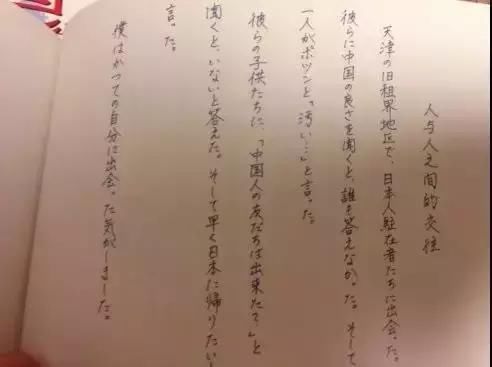 人与人之间的交往
天津の旧租界地区で、日本人駐在者たちに出会った。
彼らに中国の良さを聞くと、誰も答えなかった。そして
一人がポツンと「汚い…」と言った。
彼らの子供たちに、「中国人の友だちは出来た？」と
聞くと、いないと答えた。そして早く日本に帰りたい
言った。
僕はかつての自分に出会った気がしました。